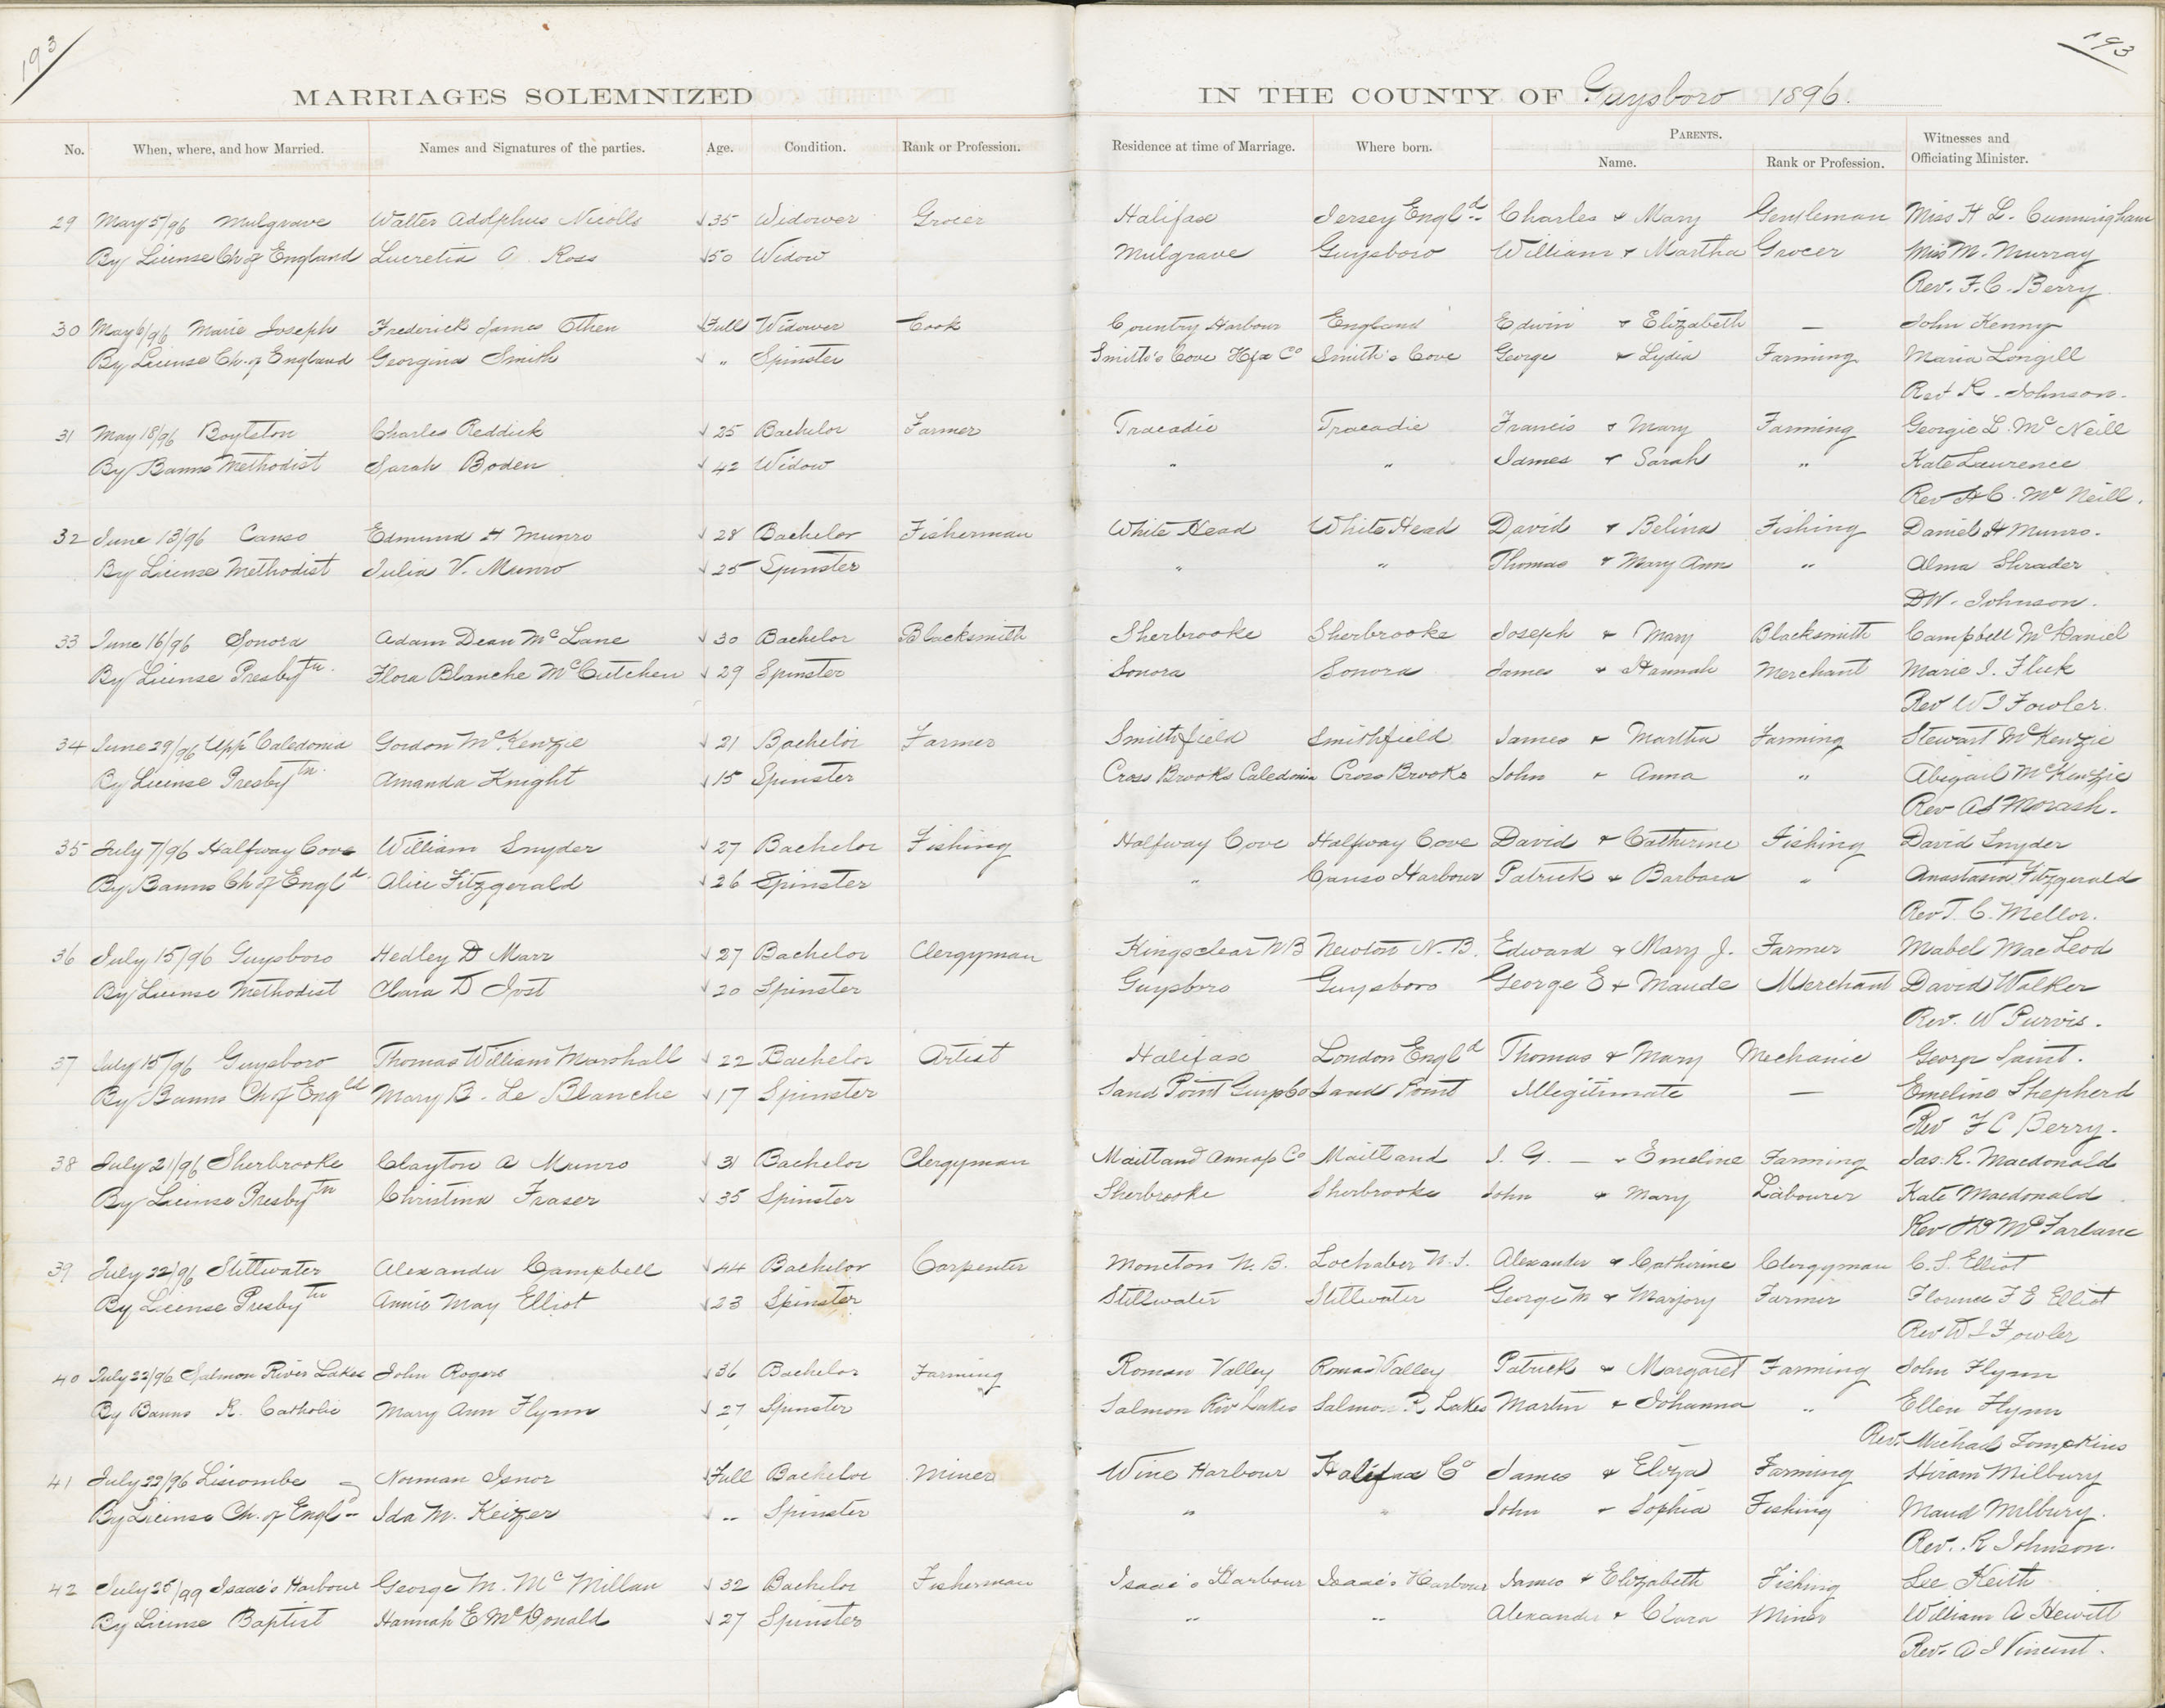 193
193
MARRIAGES SOLEMNIZED IN THE COUNTY OF Guysboro 1896.
No. When, where, and how Married. Names and Signatures of the parties. Age. Condition. Rank or Profession. Residence at time of Marriage. Where born. PARENTS. Name. Rank or Profession. Witnesses and Officiating Minister.
29 May 5/96 Mulgrave Walter Adolphus Nicolls √35 Widower Grocer Halifax Jersey Engld. Charles & Mary Gentleman Miss H L. Cunningham
By License Ch of England Lucretia A. Ross √50 Widow Mulgrave Guysboro William & Martha Grocer Miss M. Murray
Rev. F. C. Berry
30 May 6/96 Marie Joseph Frederick James Othen √Full Widower Cook Country Harbour England Edwin & Elizabeth — John Kenny
By License Ch. of England Georgina Smith √ " Spinster Smith's Cove Hfx Co Smith's Cove George & Lydia Farming Maria Longill
Rev R. Johnson.
31 May 18/96 Boylston Charles Reddick √25 Bachelor Farmer Tracadie Tracadie Francis & Mary Farming Georgie L. McNeill
By Banns Methodist Sarah Boden √42 Widow " " James & Sarah " Kate Laurence
Rev A C. McNeill.
32 June 13/96 Canso Edmund H Munro √28 Bachelor Fisherman White Head White Head David & Belina Fishing Daniel H Munro.
By License Methodist Julia V. Munro √25 Spinster " " Thomas & Mary Ann " Alma Shrader
D W. Johnson.
33 June 16/96 Sonora Adam Dean McLane √30 Bachelor Blacksmith Sherbrooke Sherbrooke Joseph & Mary Blacksmith Campbell McDaniel
By License Presbytn. Flora Blanche McCutchen √29 Spinster Sonora Sonora James & Hannah Merchant Marie J. Fluk
Rev W J Fowler.
34 June 29/96 Upp Caledonia Gordon McKenzie √21 Bachelor Farmer Smithfield Smithfield James & Martha Farming Stewart McKenzie
By License Presbytn. Amanda Knight √15 Spinster Cross Brooks Caledonia Cross Brooks John & Anna " Abigail McKenzie
Rev A S Morash.
35 July 7/96 Halfway Cove William Snyder √27 Bachelor Fishing Halfway Cove Halfway Cove David & Catherine Fishing David Snyder
By Banns Ch of Engld. Alice Fitzgerald √26 Spinster " Canso Harbour Patrick & Barbara " Anastasia Fitzgerald
Rev T. C. Mellor.
36 July 15/96 Guysboro Hedley D Marr √27 Bachelor Clergyman Kingsclear NB Newton N. B. Edward & Mary J. Farmer Mabel MacLeod
By License Methodist Clara D Jost √20 Spinster Guysboro Guysboro George E & Maude Merchant David Walker
Rev. W Purvis.
37 July 15/96 Guysboro Thomas William Marshall √22 Bachelor Artist Halifax London Engld Thomas & Mary Mechanic George Saint.
By Banns Ch of Engld Mary B. Le Blanche √17 Spinster Sand Point Guys Co Sand Point Illegitimate — Emeline Shepherd
Rev F C Berry.
38 July 21/96 Sherbrooke Clayton A Munro √31 Bachelor Clergyman Maitland Annap Co Maitland J. G. — & Emeline Farming Jas. R. Macdonald
By License Presbytn Christina Fraser √35 Spinster Sherbrooke Sherbrooke John & Mary Labourer Kate Macdonald
Rev McFarlane
39 July 22/96 Stillwater Alexander Campbell √44 Bachelor Carpenter Moncton N. B. Lochaber N. S. Alexander & Catherine Clergyman C. S. Elliot
By License Presbytn Annie May Elliot √23 Spinster Stillwater Stillwater George M & Marjory Farmer Florence F E Elliot
Rev W J Fowler
40 July 22/96 Salmon River Lakes John Rogers √36 Bachelor Farming Roman Valley Roman Valley Patrick & Margaret Farming John Flynn
By Banns R. Catholic Mary Ann Flynn √27 Spinster Salmon Riv Lakes Salmon R Lakes Martin & Johanna " Ellen Flynn
Rev. Michael Tompkins
41 July 22/96 Liscombe Norman Isnor √Full Bachelor Miner Wine Harbour Halifax Co James & Eliza Farming Hiram Milbury
By License Ch. of Engl Ida M. Keizer √ " Spinster " " John & Sophia Fishing Maud Milbury.
Rev. R Johnson.
42 July 25/99 Isaac's Harbour George M. McMillan √32 Bachelor Fisherman Isaac's Harbour Isaac's Harbour James & Elizabeth Fishing Lee Keith
By License Baptist Hannah E McDonald √27 Spinster " " Alexander & Clara Miner William A Hewitt
Rev. A J Vincent.